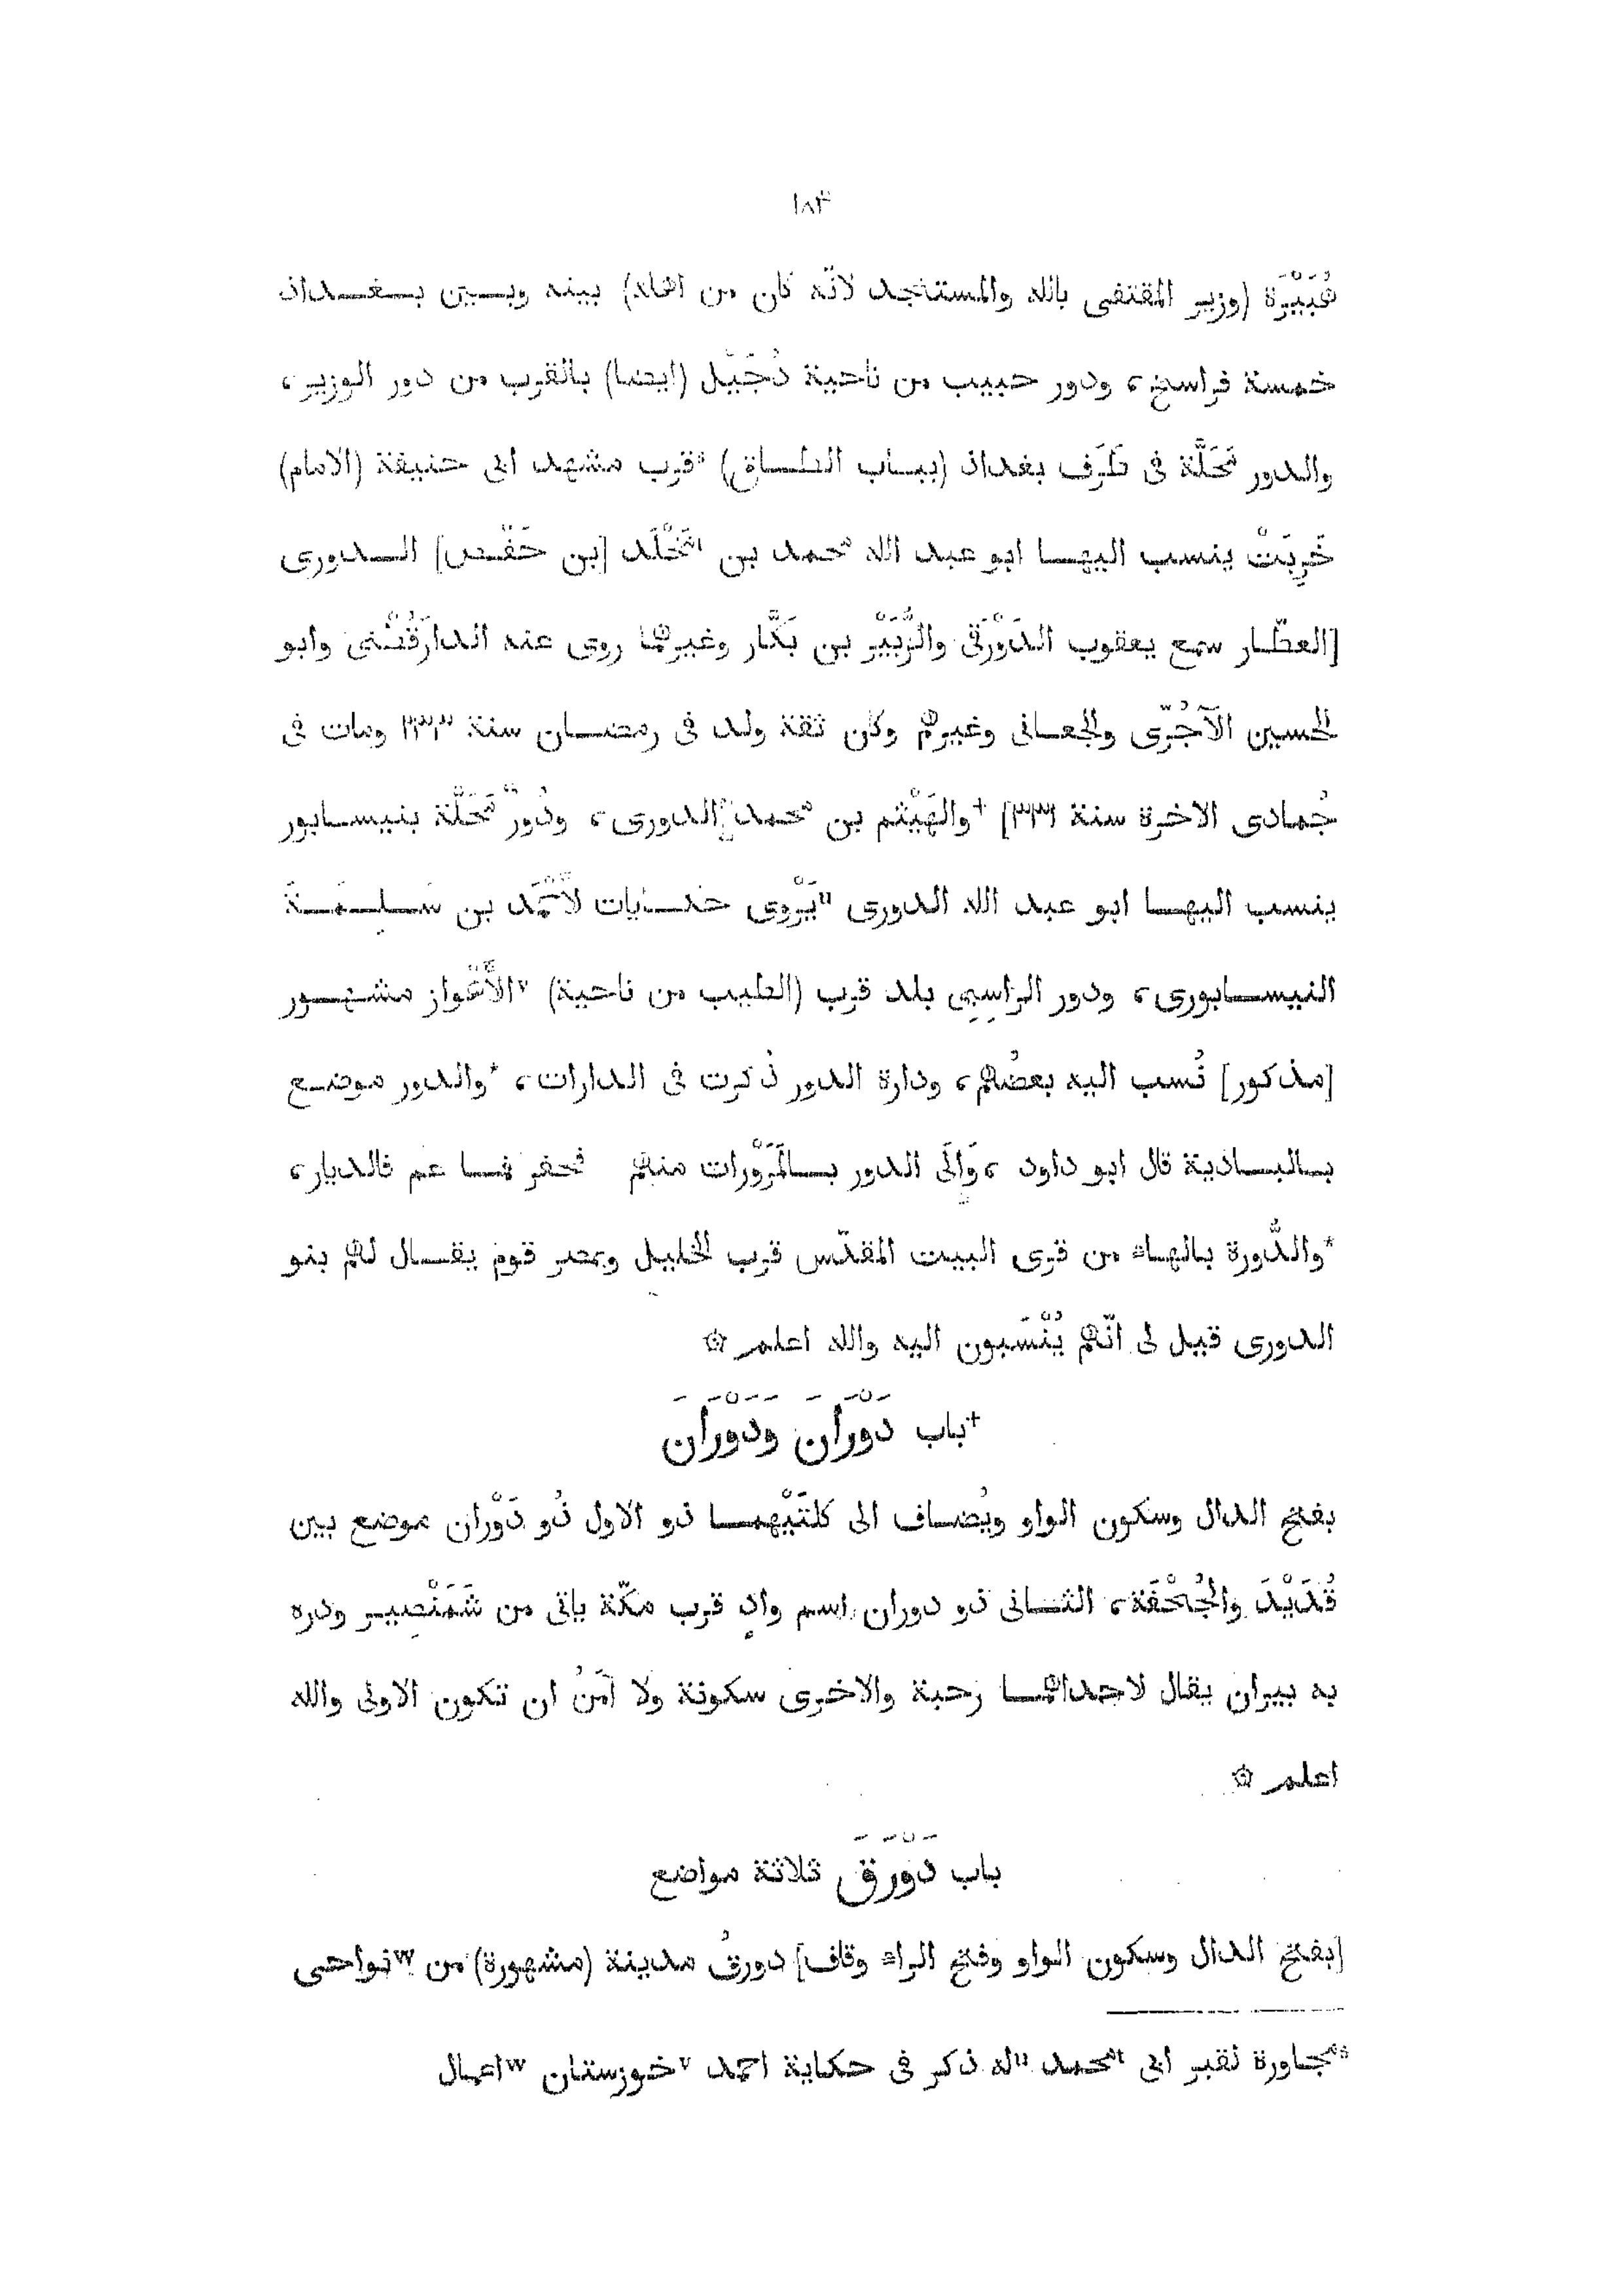 ١٨٣
هُبَيْرَة (وزير المقتفى بالله والمستنجد لانّه كان من اهله) بينه وبين بغداذ
خمسة فراسخ، ودور حبيب من ناحية دُجَيْل (ايضا) بالقرب من دور الوزير،
والدور مَحَلَّة فى طَرَف بغداذ (بباب الطاق) sقرب مشهد ابى حنيفة (الامام)
خَرِبَتْ ينسب اليها ابو عبد الله محمد بن tمَخْلَد [بن حَفْص] الدورى
[العطّار سمع يعقوب الدَوْرَقى والزُّبَيْر بن بَكَّار وغيرهما روى عنه الدارَقُطْنى وابو
الحسين الآجُرّى والجعانى وغيرهم وكان ثقة ولد فى رمضان سنة ٢٣٣ ومات فى
جُمادى الاخرة سنة ٣٣١] †والهَيْثم بن محمد الدورى، ودُورٌ مَحَلَّة بنيسابور
ينسب اليها ابو عبد الله الدورى uيَرْوى حكايات لأَحْمَد بن سَلِمَة
النيسابورى، ودور الراسِبِى بلد قرب (الطيب من ناحية) vالأَهْواز مشهور
[مذكور] نُسب اليه بعضُهم، ودارة الدور ذُكرت فى الدارات، *والدور موضع
بالبادية قال ابو داود ،وَإلَى الدور بالمَرَوْرات منهم فحفر فالديار،
*والدُّورة بالهاء من قرى البيت المقدّس قرب الخليل وبمصر قوم يقال لهم بنو
الدورى قيل لى انّهم يُنْسَبون اليه والله اعلم ۞
†باب دَوْرَانَ وَدَوْرَانَ
بفتح الدال وسكون الواو ويُضاف الى كلتَيْهما ذو الاول ذُو دَوْران موضع بين
قُدَيْدَ والجُحْفَة، الثانى ذو دوران اسم وادٍ قرب مكّة ياتى من شَمَنْصِير ودره
به بيران يقال لاحداهما رحبة والاخرى سكوبة ولا آمَنُ ان تكون الاولى والله
اعلم ۞
باب دَوْرَقَ ثلاثة مواضع
[بفتح الدال وسكون الواو وفتح الراء وقاف] دورقُ مدينة (مشهورة) من wنواحى
sمجاورة لقبر ابى tمحمد uله ذكر فى حكاية احمد vخوزستان wاعمال